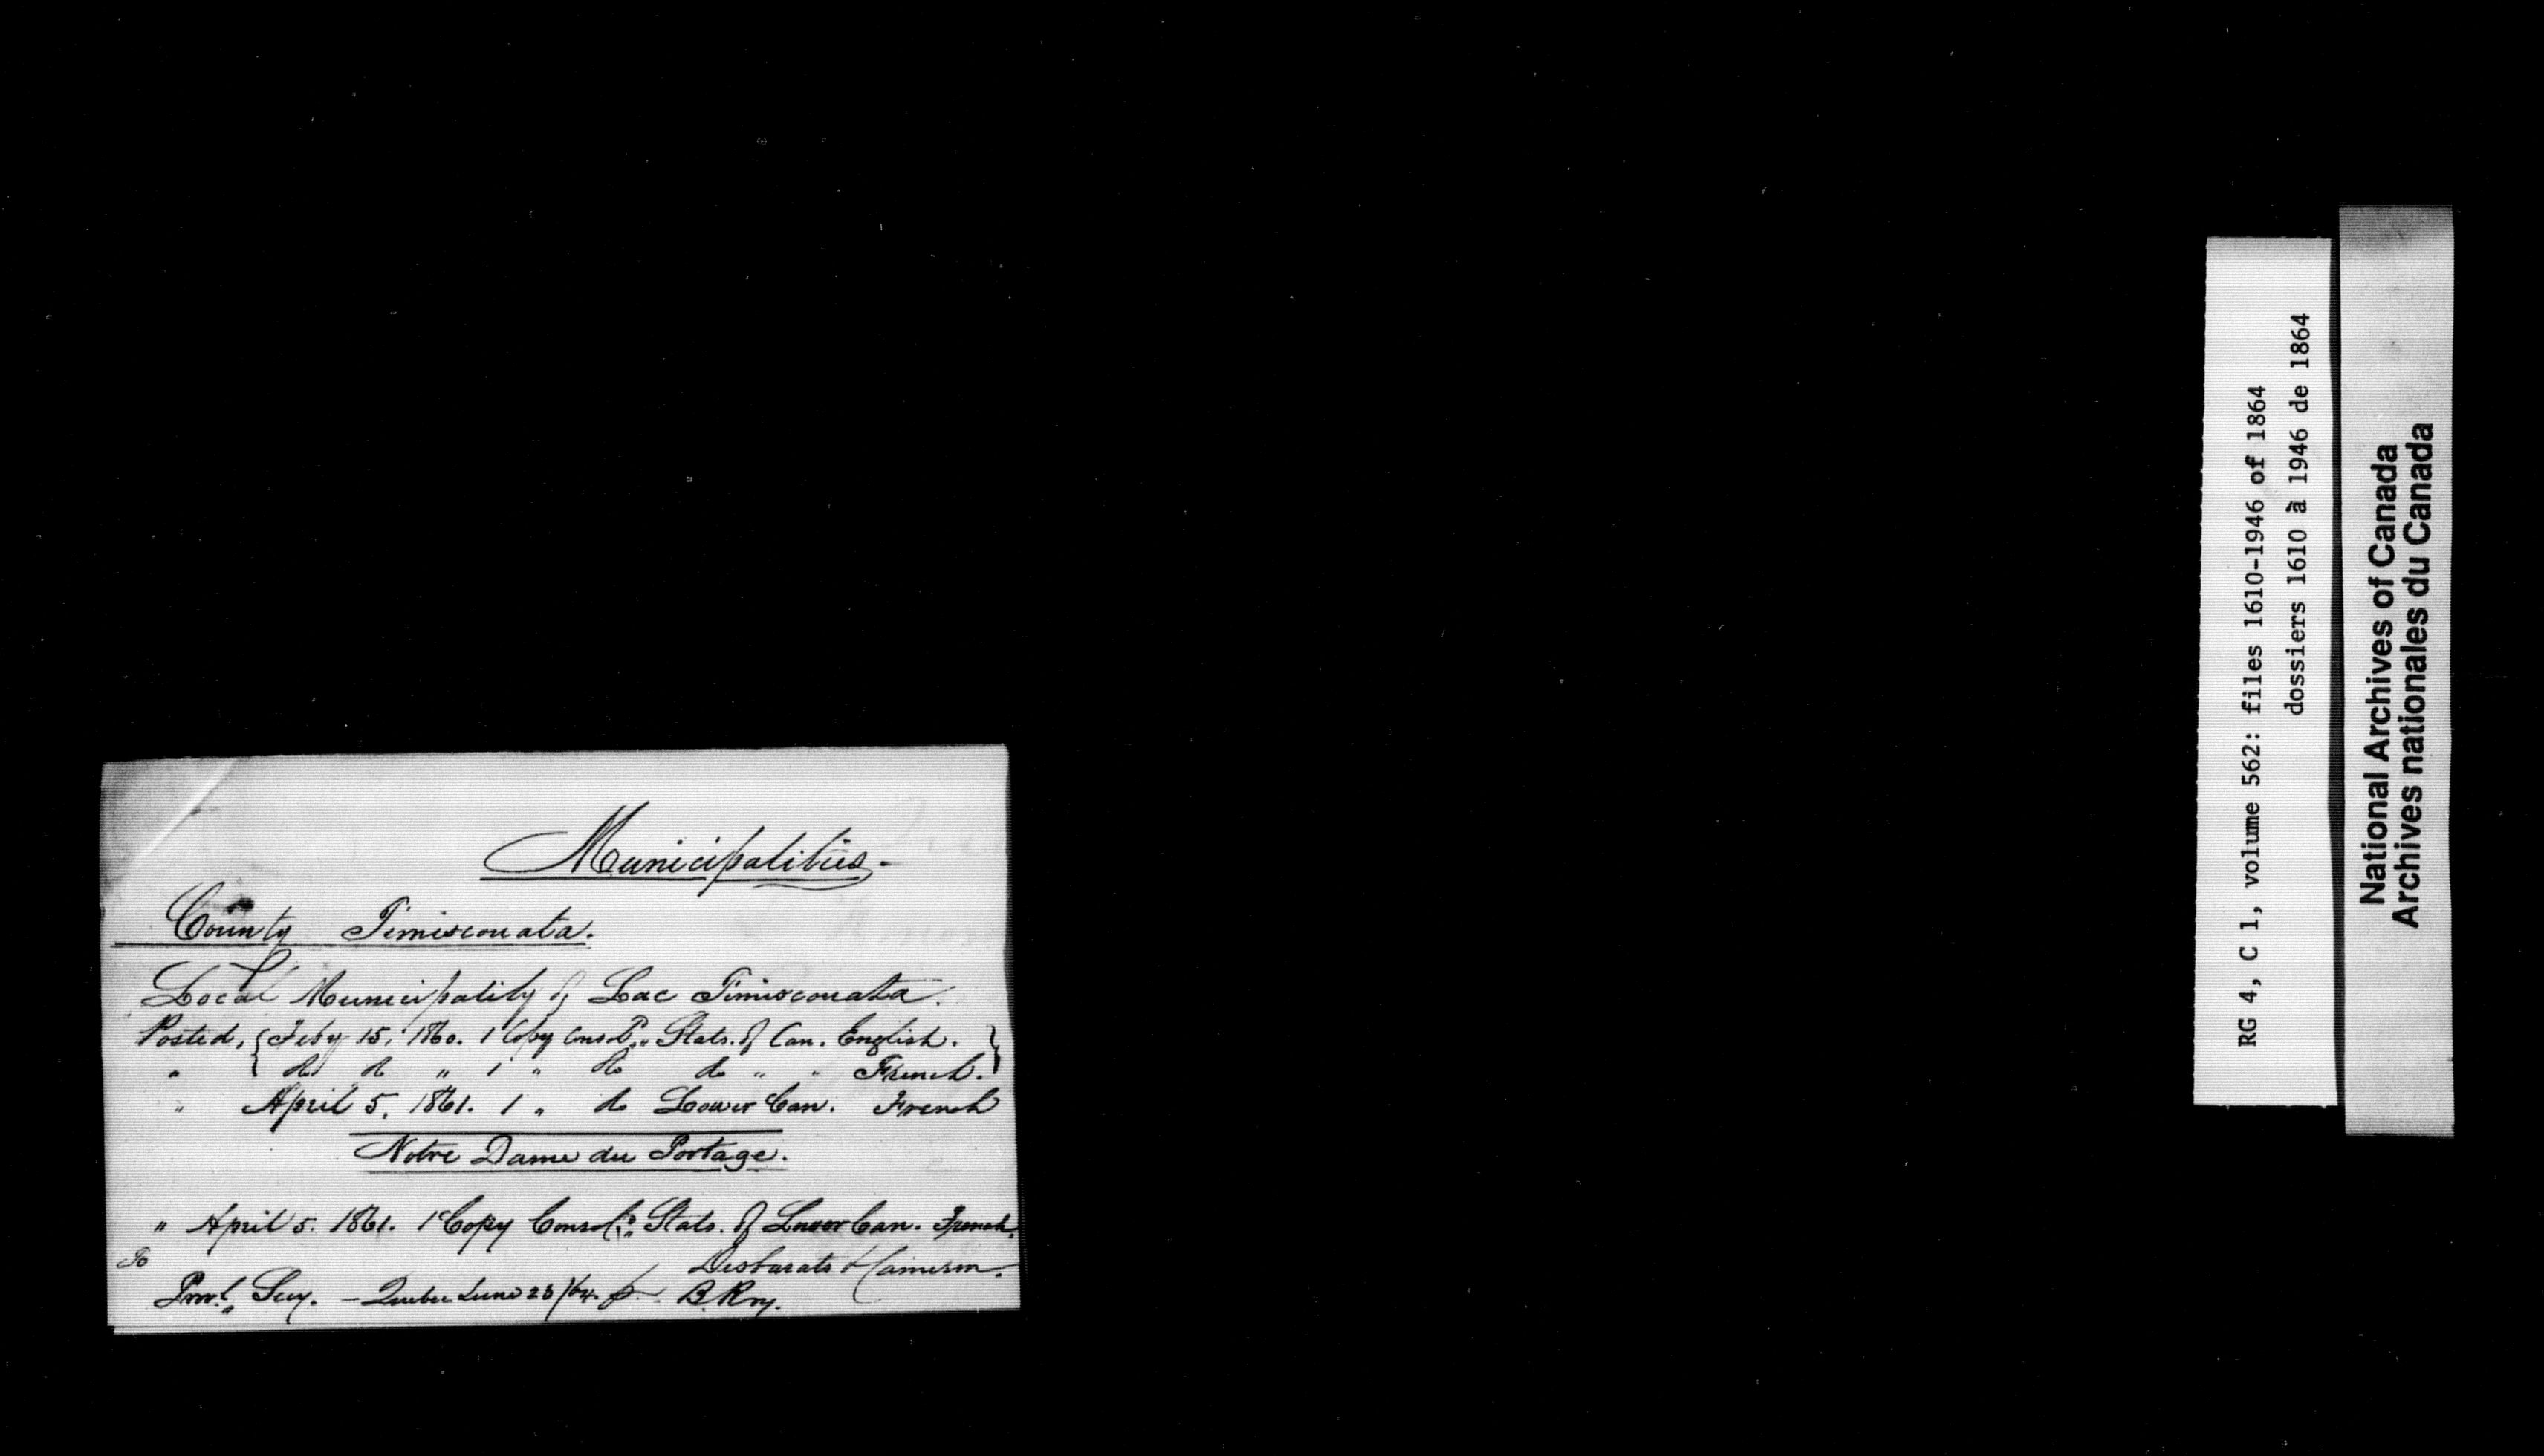 Municipalities.
County Temiscouata.
Local Municipality of Lac Temiscouata.
Posted, { Feby 15, 1860. 1 Copy Consol.d Stats. of Can. English. }
" { do do " 1 " do do " " French. }
" April 5, 1861. 1 " do Lower Can. French
Notre Dame du Portage.
" April 5. 1861. 1 Copy Consol.d Stats. of Lower Can. French.
To Desbarats & Cameron.
Prov.l Secy. - Quebec June 23/64. p. B. Roy.
RG 4, C 1, volume 562: files 1610-1946 of 1864
dossiers 1610 à 1946 de 1864
National Archives of Canada
Archives nationales du Canada